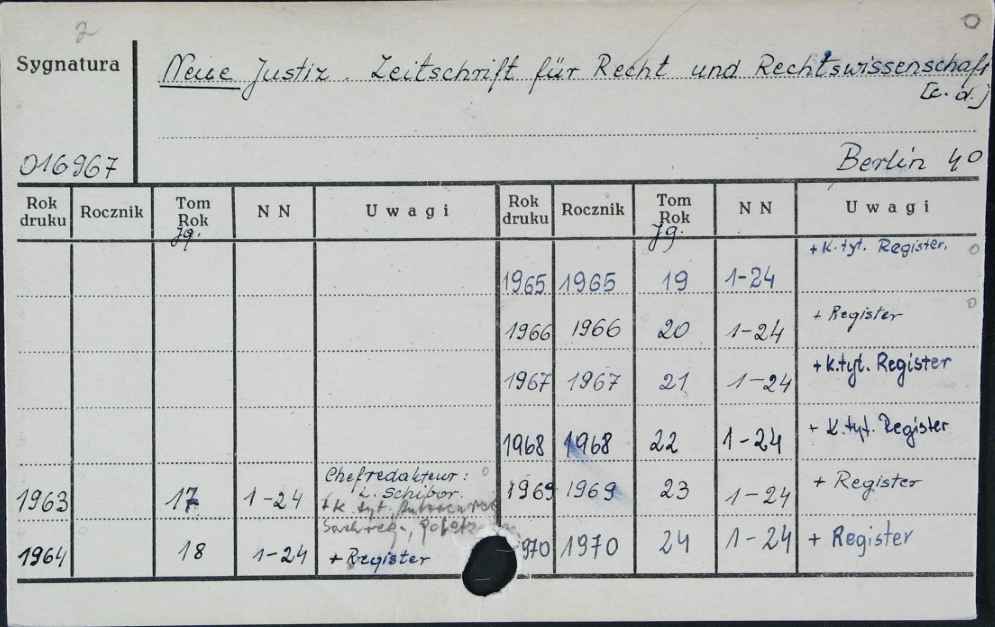 2
Sygnatura
Neue Justiz. Zeitschrift für Recht und Rechtswissenschaft
[c. d.]
016967
Berlin 40
Rok druku Rocznik Tom Rok Jg. NN Uwagi Rok druku Rocznik Tom Rok Jg. NN Uwagi
1965 1965 19 1-24 + K. tyt. Register.
1966 1966 20 1-24 + Register
1967 1967 21 1-24 + K. tyt. Register
1968 1968 22 1-24 + K. tyt. Register
1963 17 1-24 Chefredakteur:
L. Schibor.
+ k. tyt.
Sachreg.,
1969 1969 23 1-24 + Register
1964 18 1-24 + Register
1970 24 1-24 + Register